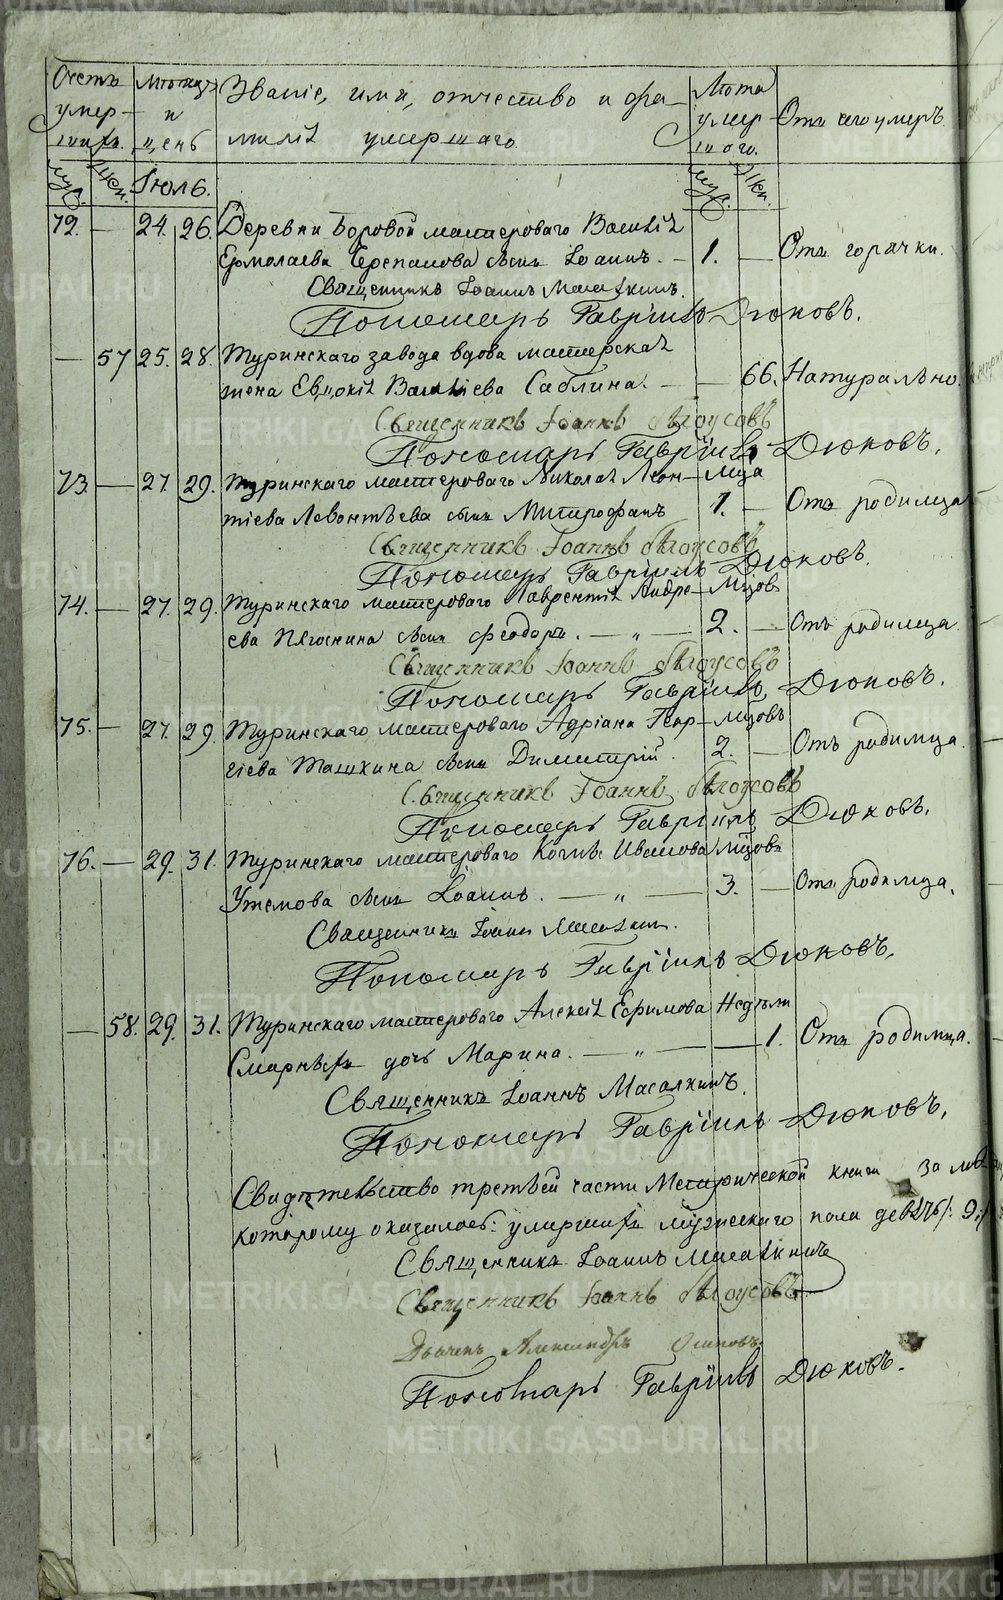 Счетъ умер- шихъ. Мѣсяцъ и день Званіе, имя, отчество и фа- милія умершаго. Лѣта умер- шаго. Отъ чего умеръ.
муж. жен. Іюль. муж. жен.
72. — 24. 26. Деревни Боровой мастероваго Василія
Ермолаева Черепанова сынъ Іоаннъ. — 1. — Отъ горячки.
Священникъ Іоаннъ Масалкинъ.
Пономарь Гавріилъ Дюковъ.
— 57 25. 28. Туринскаго завода вдова мастерская
жена Евдокія Васильева Саблина. — — 66. Натурально.
Священникъ Іоаннъ Бѣлоусовъ
Пономарь Гавріилъ Дюковъ.
73. — 27. 29. Туринскаго мастероваго Николая Леон- мца
тіева Левонтьева сынъ Митрофанъ 1. — Отъ родимца
Священникъ Іоаннъ Бѣлоусовъ
Пономарь Гавріилъ Дюковъ.
74. — 27. 29. Туринскаго мастероваго Лаврентія Андре- мцов
ева сынъ Феодоръ. — „ — 2. — Отъ родимца
Священникъ Іоаннъ Бѣлоусовъ
Пономарь Гавріилъ Дюковъ.
75. — 27. 29. Туринскаго мастероваго Адріана Геор- мцовъ
гіева Ташкина сынъ Димитрій. 2. — Отъ родимца.
Священникъ Іоаннъ Бѣлоусовъ
Пономарь Гавріилъ Дюковъ.
76. — 29. 31. Туринскаго мастероваго Ивановa мцовъ
сынъ Іоаннъ. — „ — 3. — Отъ родимца.
Священникъ Іоаннъ Масалкинъ.
Пономарь Гавріилъ Дюковъ.
— 58. 29. 31. Туринскаго мастероваго Алексія Ефимова Недѣли
дочь Марина. — „ — — 1. Отъ родимца.
Священникъ Іоаннъ Масалкинъ.
Пономарь Гавріилъ Дюковъ.
Свидѣтельство третьей части Метрической книги за
которому оказалось: умершихъ мужескаго пола девять /: 9:/
Священникъ Іоаннъ Масалкинъ
Священникъ Іоаннъ Бѣлоусовъ
Дьячекъ Александръ Осиповъ
Пономарь Гавріилъ Дюковъ.
METRIKI.GASO-URAL.RU